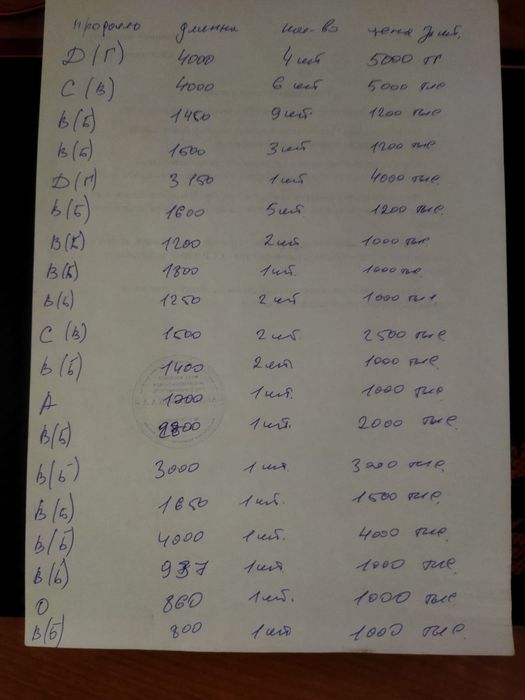 профиль длинна кол-во цена за шт.
Д(Г) 4000 4 шт 5000 тг
С(В) 4000 6 шт 5000 тнг
В(Б) 1450 9 шт. 1200 тнг
В(Б) 1500 3 шт 1200 тнг
Д(Г) 3150 1 шт 4000 тнг.
В(Б) 1600 5 шт 1200 тнг.
В(Б) 1200 2 шт 1000 тнг
В(Б) 1800 1 шт. 1000 тнг.
В(Б) 1250 2 шт 1000 тнг
С(В) 1500 2 шт. 2500 тнг
В(Б) 1400 2 шт 1000 тнг.
А 1200 1 шт. 1000 тнг
В(Б) 1 шт. 2000 тнг.
В(Б) 3000 1 шт 3000 тнг.
В(Б) 1650 1 шт. 1500 тнг.
В(Б) 4000 1 шт. 4000 тнг.
В(Б) 937 1 шт 1000 тнг.
О 860 1 шт. 1000 тнг.
В(Б) 800 1 шт 1000 тнг.